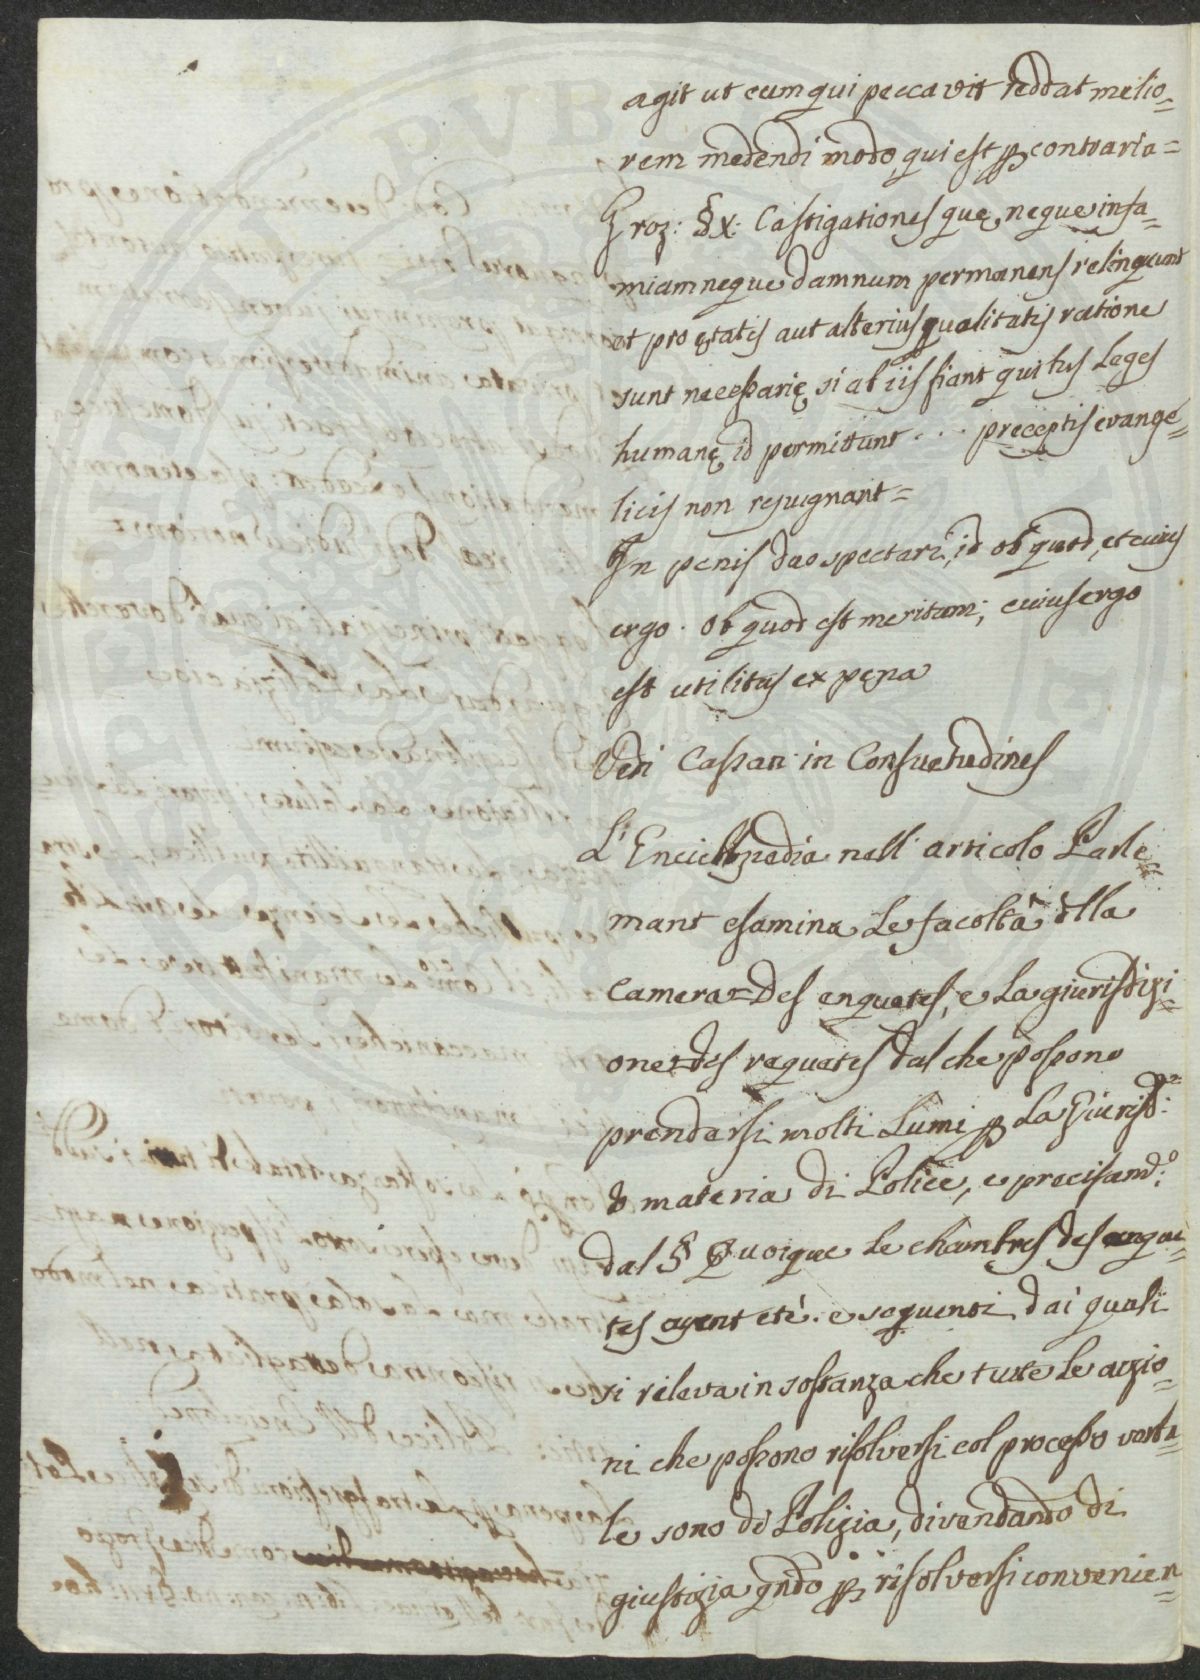 agit ut eum qui peccavit reddat melio=
rem medendi modo, qui est p contraria=
Groz: § X: Castigationes quę, neque infa=
miam neque damnum permanens relinquunt
et pro ętatis aut alterius qualitatis ratione
sunt necessarię, si ab iis fiant quibus Leges
humanę id permittunt . . . preceptis evange=
licis non repugnant=
In penis duo spectari, id ob quod, et cuius
ergo. ob quod est meritum; cuius ergo
est utilitas ex pęna
Vedi Cassan: in Consuetudines
L'Enciclopedia nell' articolo Parle=
mant esamina Le facoltà della
Camera=des enquetes, e La giurisdizi=
one=des requetes dal che possono
prendersi molti Lumi p La Giurisd:
materia di Police, e precisamo:
dal § Quoique Le chambres des enque=
tes ayent etè. e seguenti dai quali
si rileva in sostanza che tutte Le azio=
ni che possono risolversi col processo verba=
le sono di Polizia, divendando di
giustizia qndo p risolversi convenien=